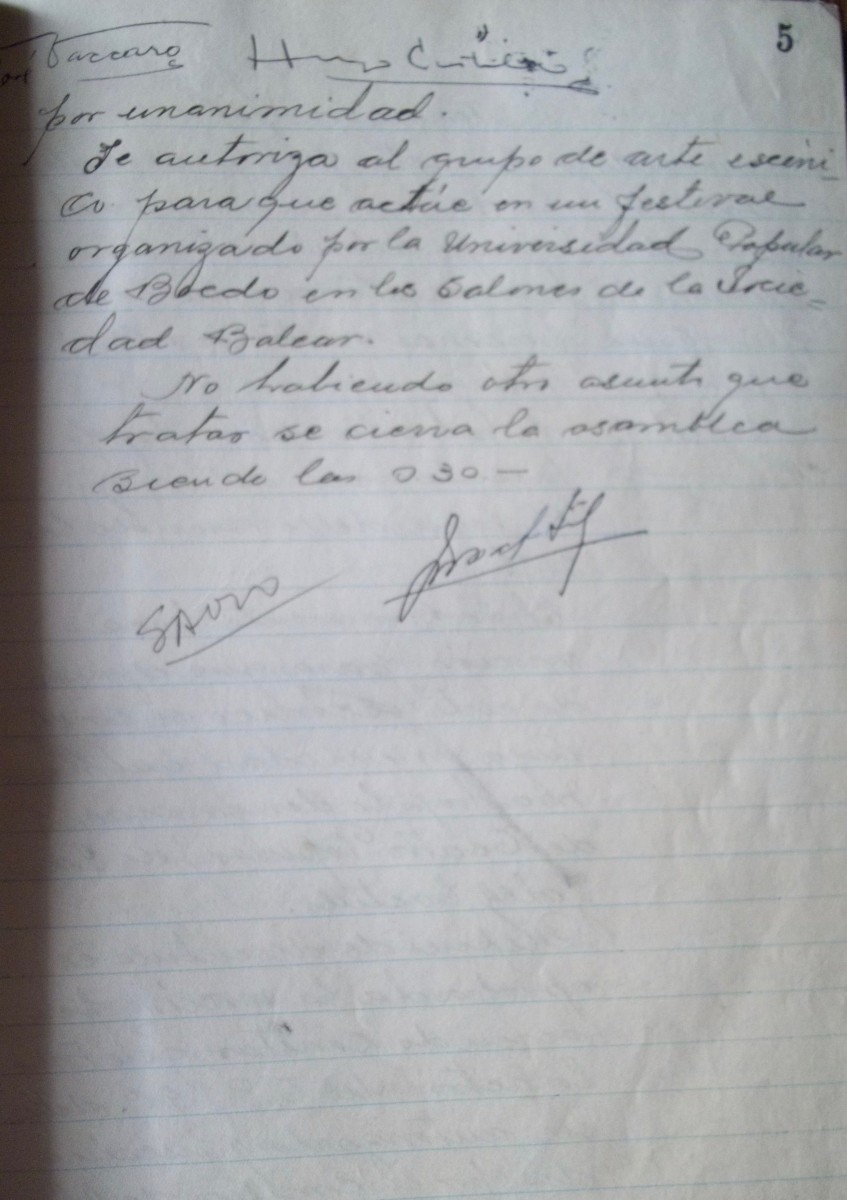 5
Vaccaro Hugo
por unanimidad.
Se autoriza al grupo de arte escéni-
co para que actúe en un festival
organizado por la Universidad Popular
de Boedo en los Salones de la Socie=
dad Balear.
No habiendo otro asunto que
tratar se cierra la asamblea
siendo las 0 30 —